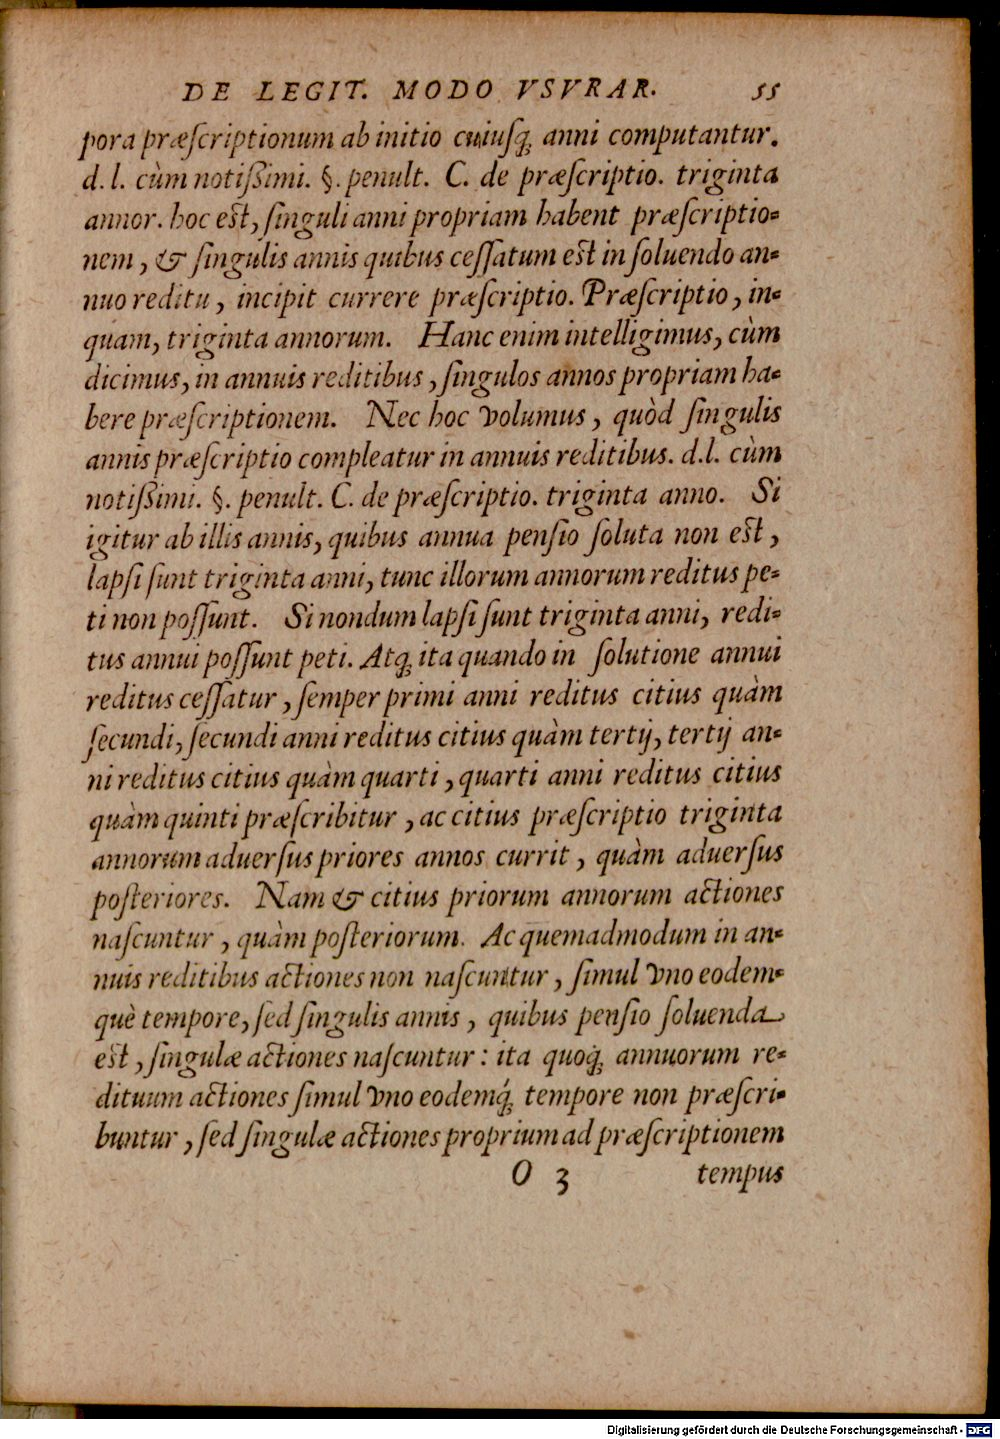 DE LEGIT. MODO VSVRAR. 55
pora præſcriptionum ab initio cuiuſq́; anni computantur.
d. l. cùm notiſsimi. §. penult. C. de præſcriptio. triginta
annor. hoc eſt, ſinguli anni propriam habent præſcriptio-
nem, & ſingulis annis quibus ceſſatum eſt in ſoluendo an-
nuo reditu, incipit currere præſcriptio. Præſcriptio, in-
quam, triginta annorum. Hanc enim intelligimus, cùm
dicimus, in annuis reditibus, ſingulos annos propriam ha-
bere præſcriptionem. Nec hoc volumus, quòd ſingulis
annis præſcriptio compleatur in annuis reditibus. d.l. cùm
notiſsimi. §. penult. C. de præſcriptio. triginta anno. Si
igitur ab illis annis, quibus annua penſio ſoluta non eſt,
lapſi ſunt triginta anni, tunc illorum annorum reditus pe-
ti non poſſunt. Si nondum lapſi ſunt triginta anni, redi-
tus annui poſſunt peti. Atq; ita quando in ſolutione annui
reditus ceſſatur, ſemper primi anni reditus citius quàm
ſecundi, ſecundi anni reditus citius quàm tertij, tertij an-
ni reditus citius quàm quarti, quarti anni reditus citius
quàm quinti præſcribitur, ac citius præſcriptio triginta
annorum aduerſus priores annos currit, quàm aduerſus
poſteriores. Nam & citius priorum annorum actiones
naſcuntur, quàm poſteriorum. Ac quemadmodum in an-
nuis reditibus actiones non naſcuntur, ſimul vno eodem-
què tempore, ſed ſingulis annis, quibus penſio ſoluenda
eſt, ſingulæ actiones naſcuntur: ita quoq́; annuorum re-
dituum actiones ſimul vno eodemq́; tempore non præſcri-
buntur, ſed ſingulæ actiones proprium ad præſcriptionem
O 3 tempus
Digitalisierung gefördert durch die Deutsche Forschungsgemeinschaft - DFG